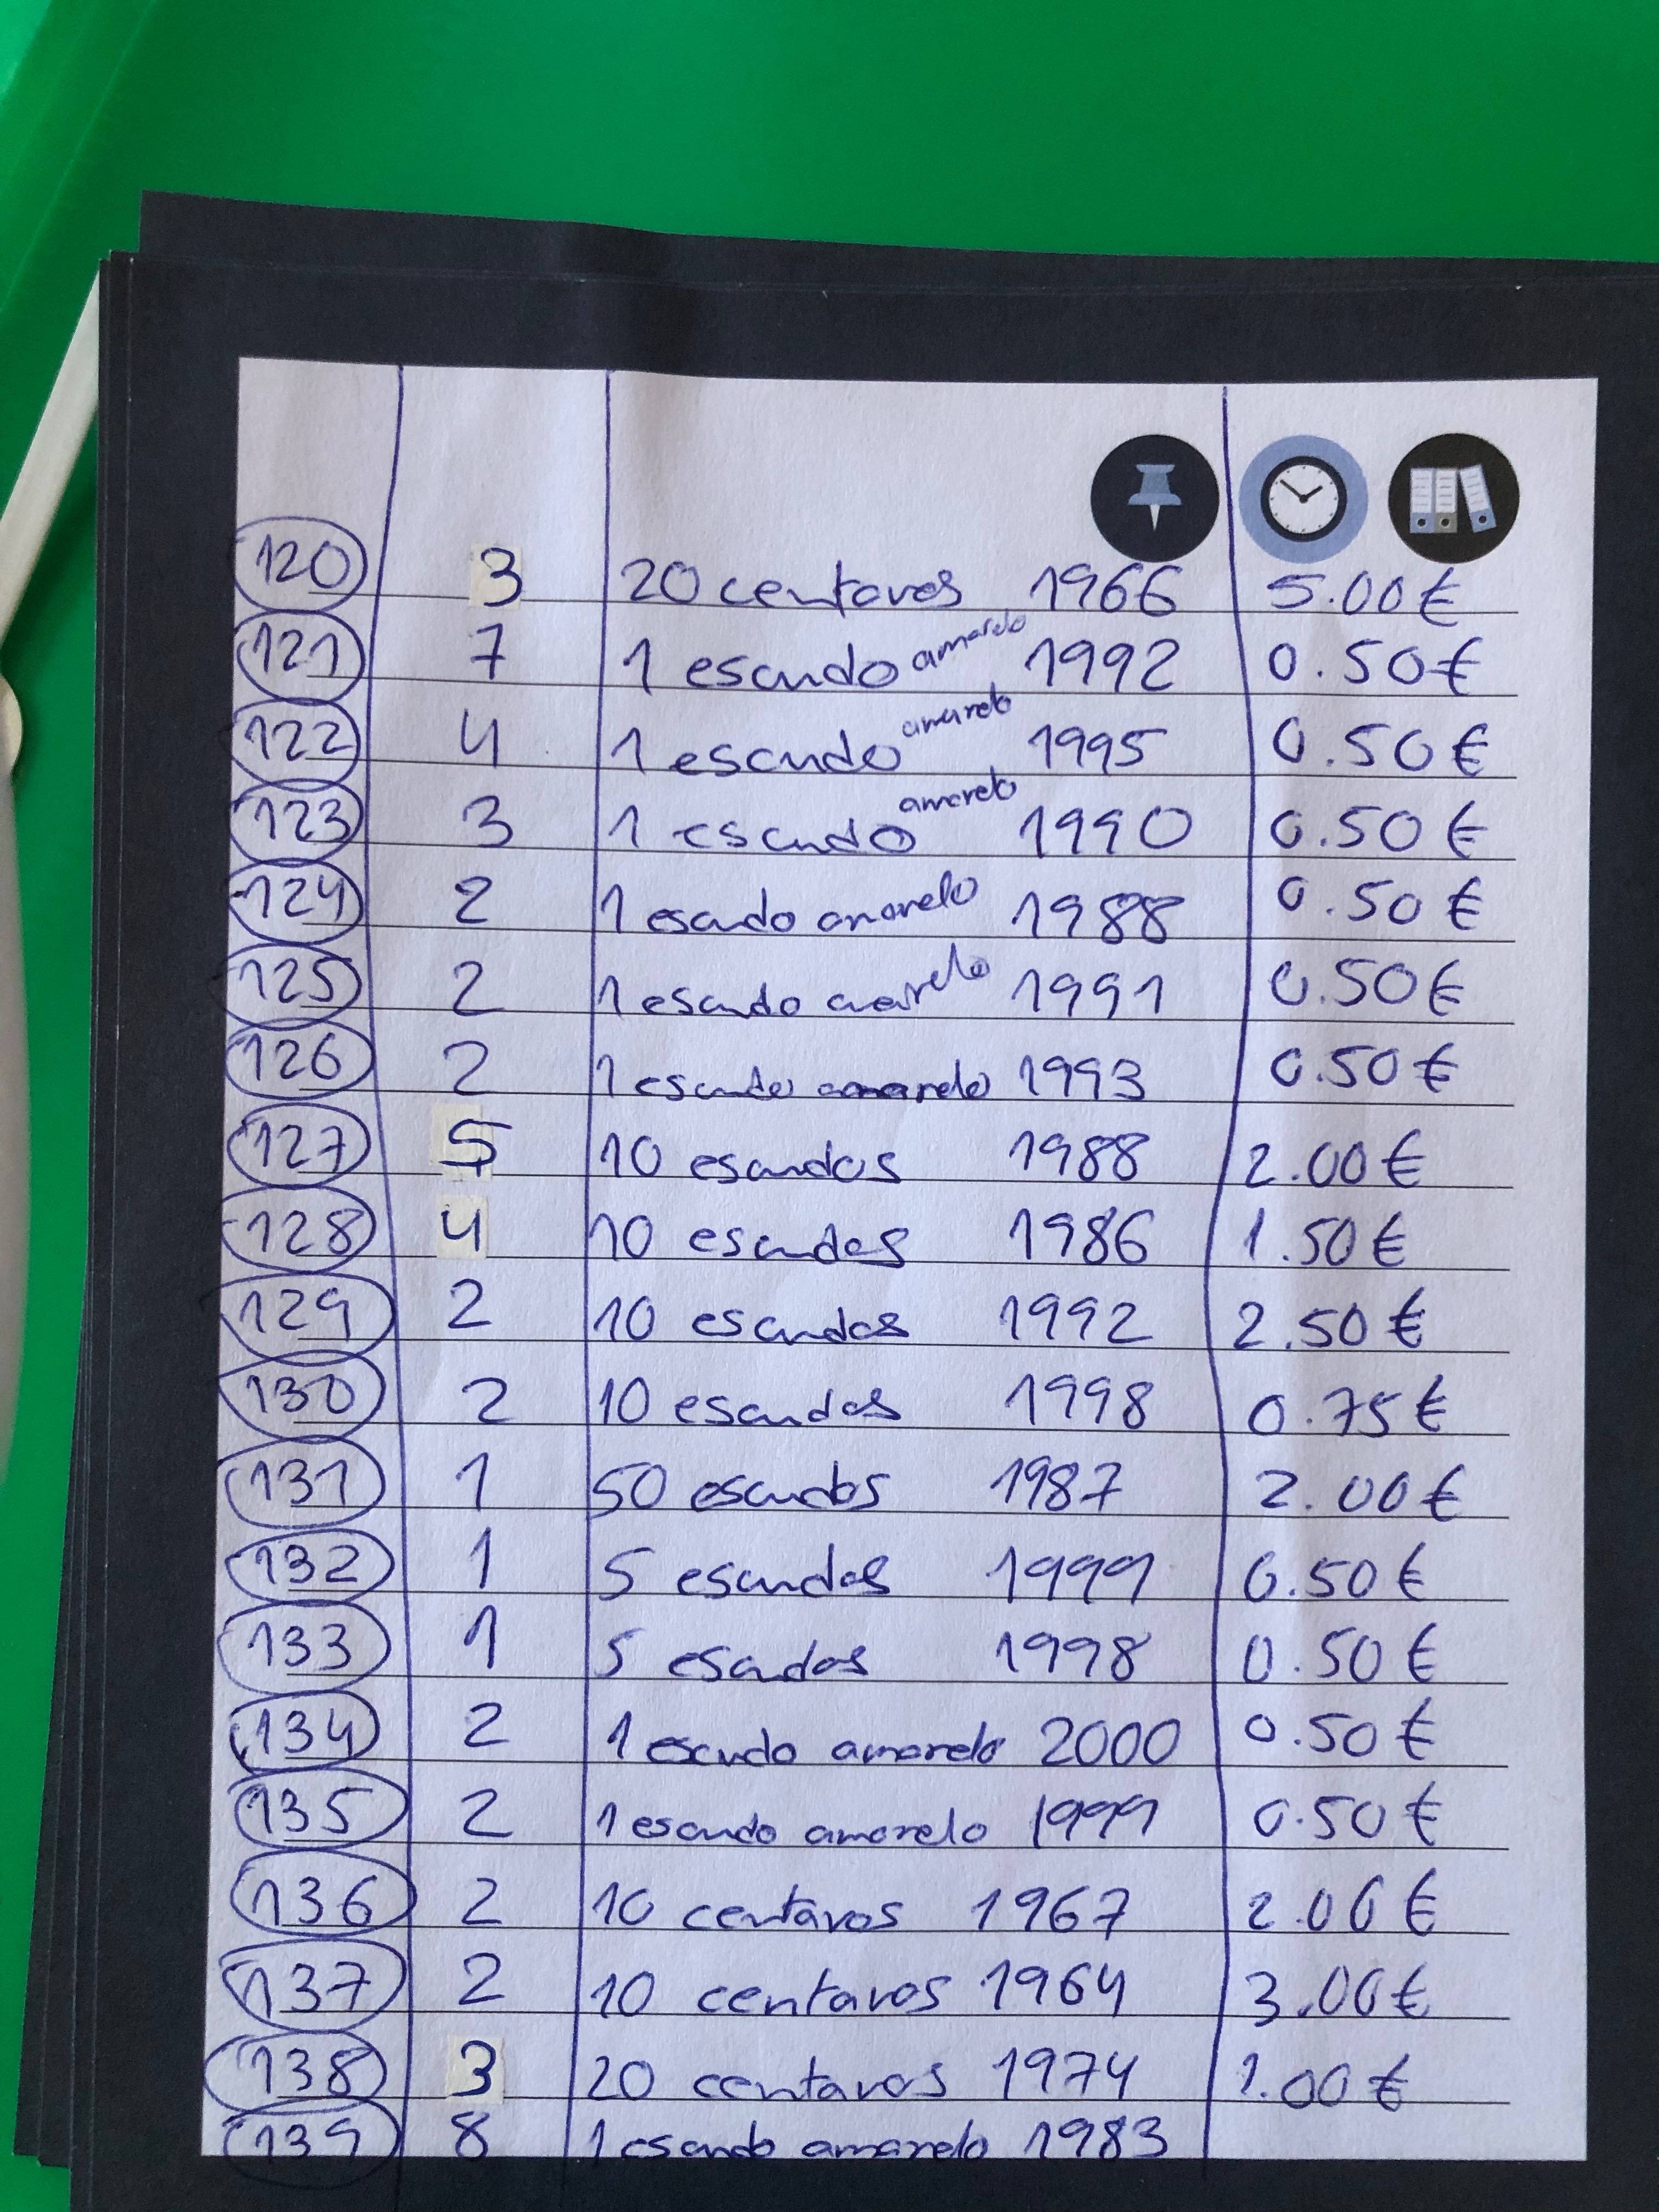 120 3 20 centavos 1966 5.00€
121 7 1 escudo amarelo 1992 0.50€
122 4 1 escudo amarelo 1995 0.50€
123 3 1 escudo amarelo 1990 0.50€
124 2 1 escudo amarelo 1988 0.50€
125 2 1 escudo amarelo 1991 0.50€
126 2 1 escudo amarelo 1993 0.50€
127 5 10 escudos 1988 2.00€
128 4 10 escudos 1986 1.50€
129 2 10 escudos 1992 2.50€
130 2 10 escudos 1998 0.75€
131 1 50 escudos 1987 2.00€
132 1 5 escudos 1999 0.50€
133 1 5 escudos 1998 0.50€
134 2 1 escudo amarelo 2000 0.50€
135 2 1 escudo amarelo 1999 0.50€
136 2 10 centavos 1967 2.00€
137 2 10 centavos 1964 3.00€
138 3 20 centavos 1974 1.00€
139 8 1 escudo amarelo 1983